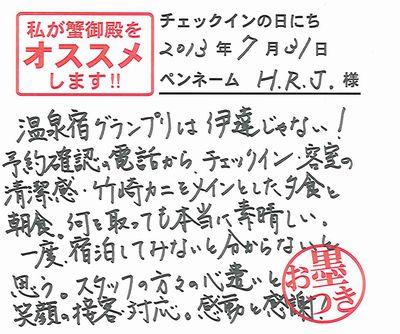 私が蟹御殿を
オススメ
します!!
チェックインの日にち
2013年7月31日
ペンネーム H.R.J. 様
温泉宿グランプリは伊達じゃない!
予約確認の電話から、チェックイン・客室の
清潔感・竹崎カニをメインとした夕食と
朝食。何を取っても本当に素晴しい。
一度、宿泊してみないと分からないと
思う。スタッフの方々の心遣いと
笑顔の接客・対応。感動と感謝!
お墨つき